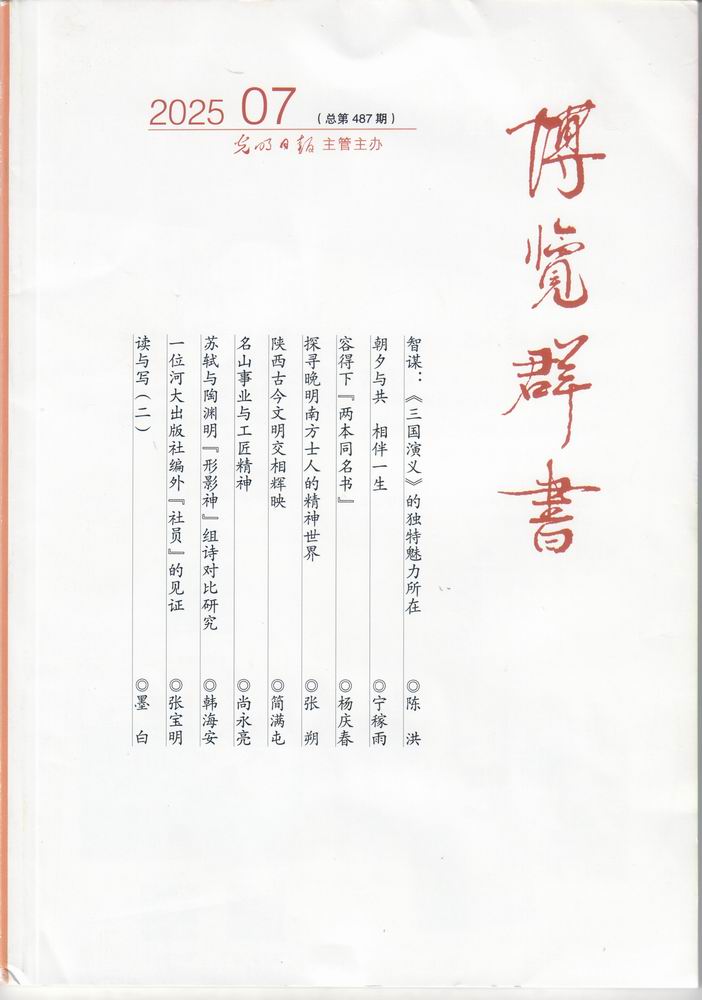 2025 07 （总第 487 期）
光明日报 主管主办
博览群書
智谋：《三国演义》的独特魅力所在 ◎陈 洪
朝夕与共 相伴一生 ◎宁稼雨
容得下『两本同名书』 ◎杨庆春
探寻晚明南方士人的精神世界 ◎张 朔
陕西古今文明交相辉映 ◎简满屯
名山事业与工匠精神 ◎尚永亮
苏轼与陶渊明『形影神』组诗对比研究 ◎韩海安
一位河大出版社编外『社员』的见证 ◎张宝明
读与写（二） ◎墨 白